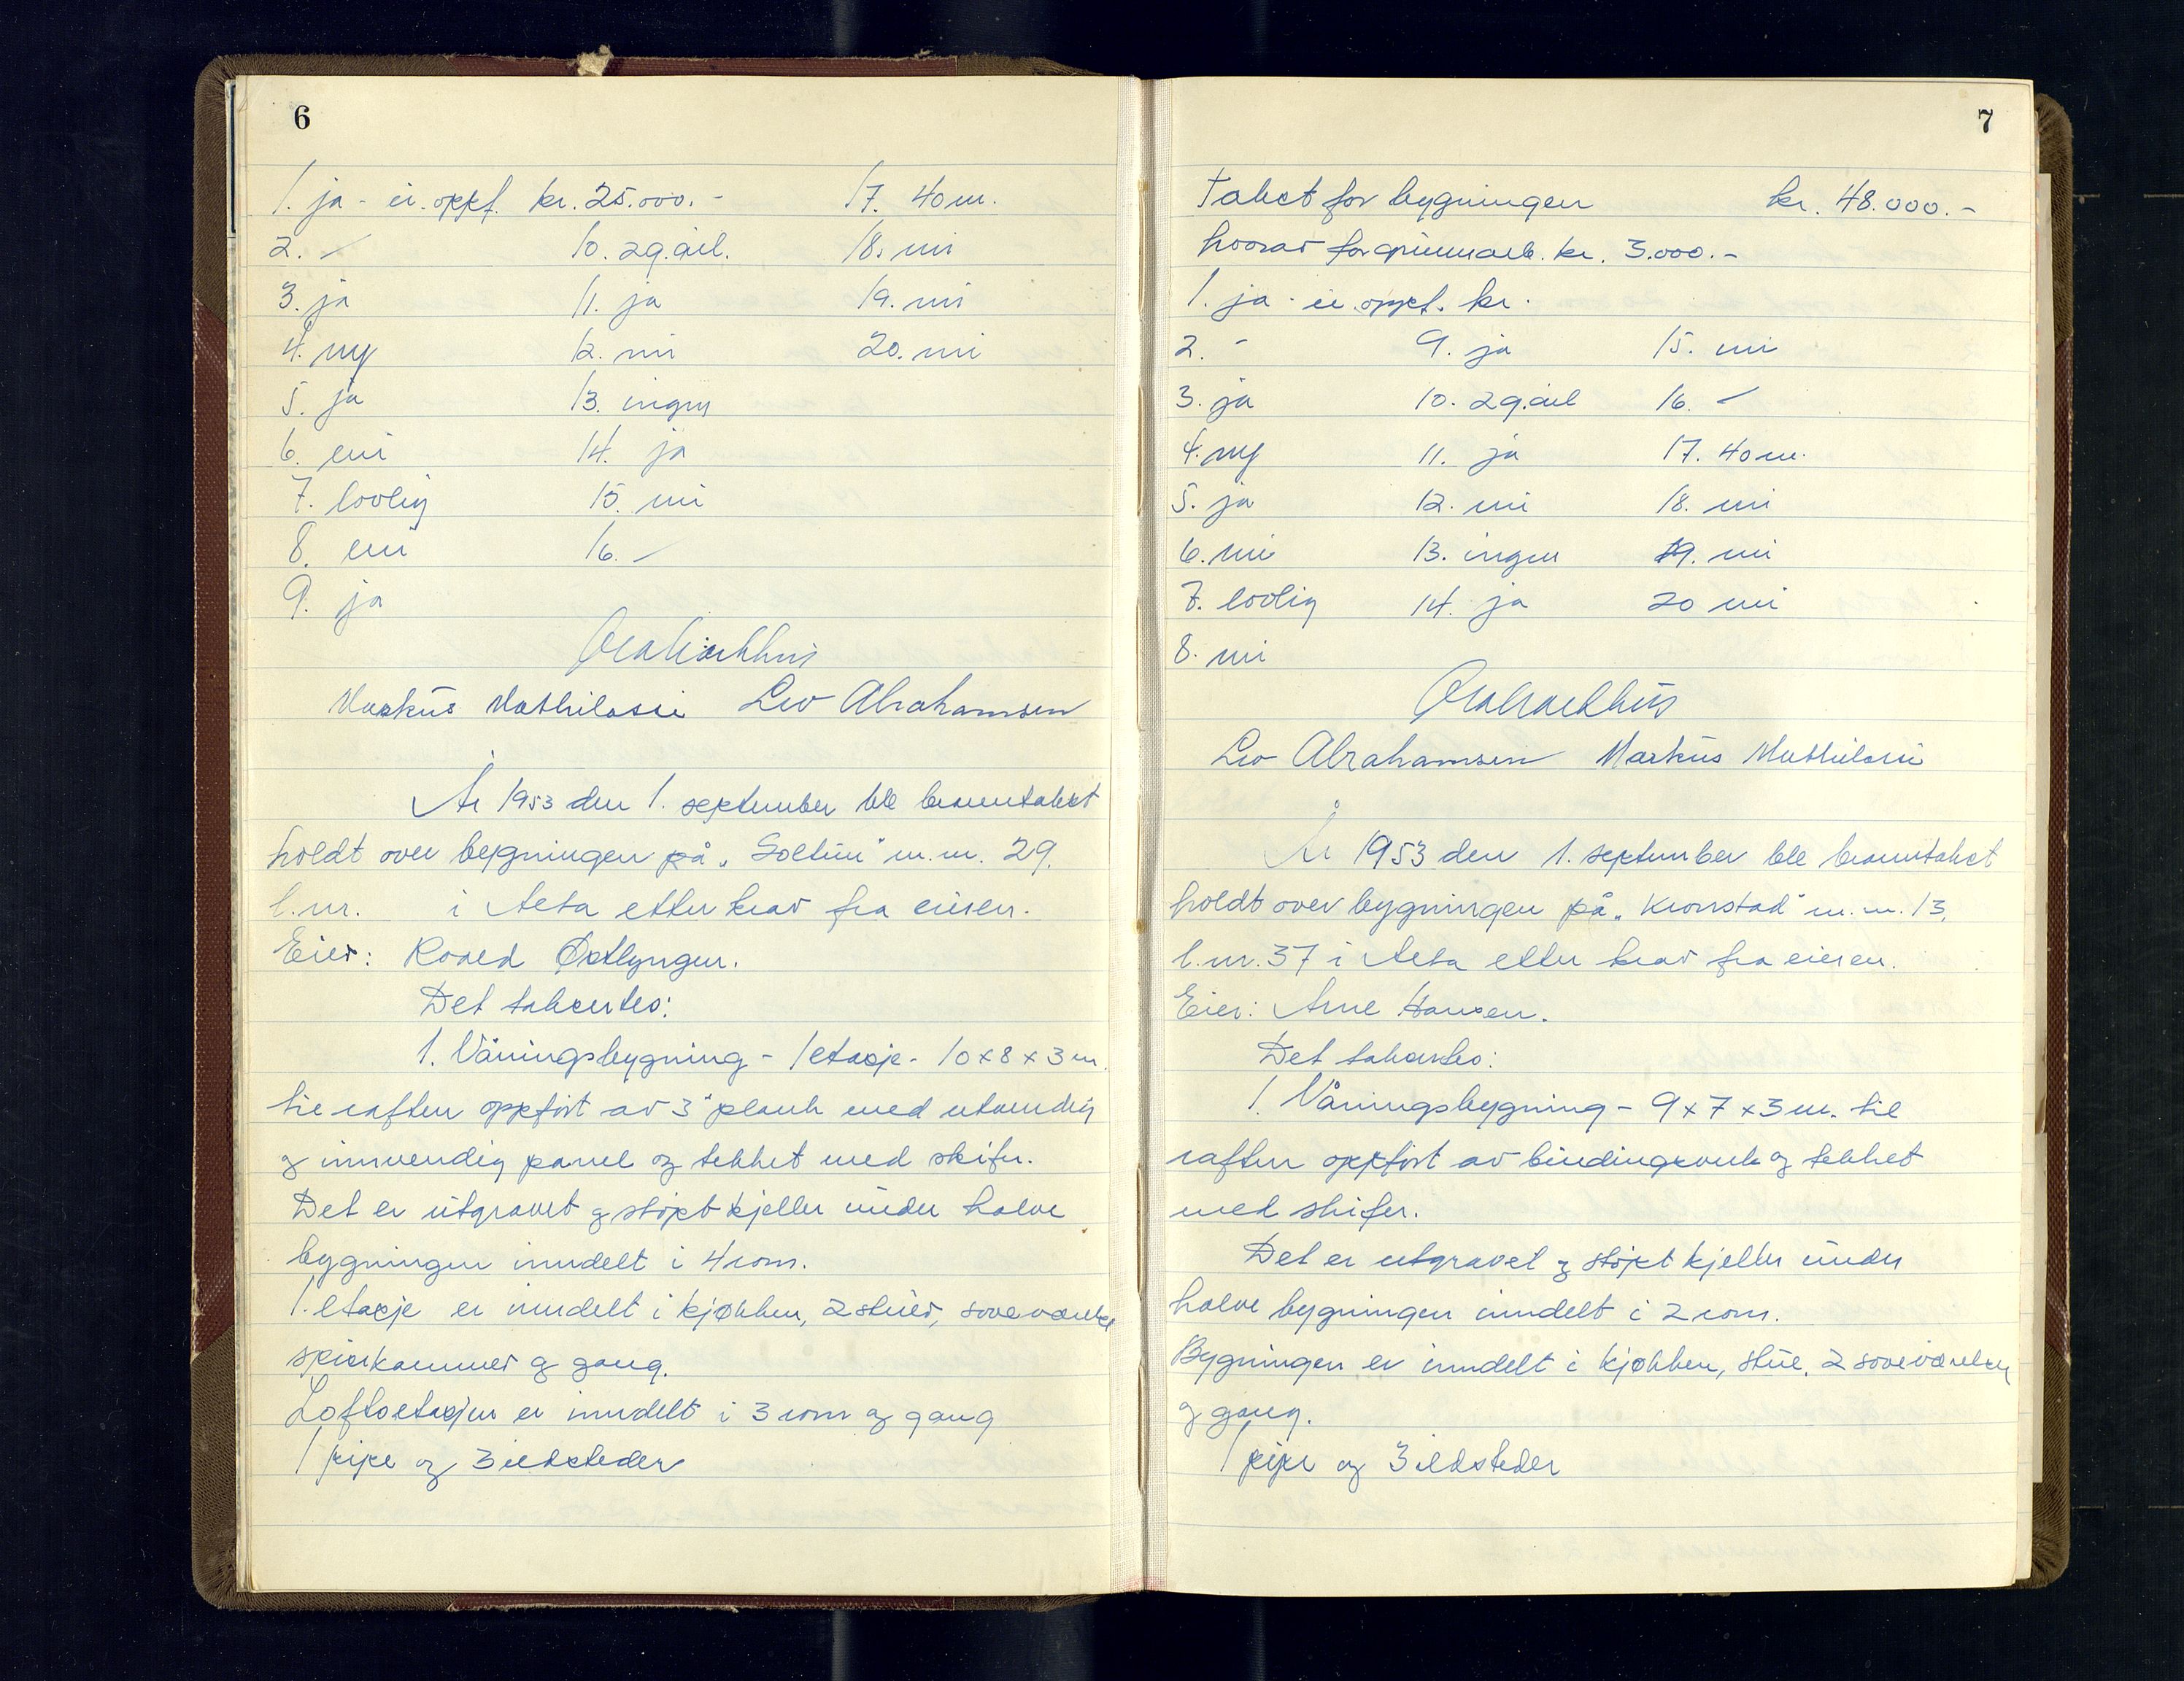 6
1. ja - ei. oppf. kr. 25.000.- 17. 40 m.
2. - 10. 2g. årl. 18. nei
3. ja 11. ja 19. nei
4. ny 12. nei 20. nei
5. ja 13. ingen
6. nei 14. ja
7. lovlig 15. nei
8. nei 16. -
9. ja
Markus Mathilassi Leo Abrahamsen
År 1953 den 1. september ble branntakst
holdt over bygningen på „Soltun" m.nr. 29.
b.nr. i Alta etter krav fra eieren.
Eier: Roald Østlyngen.
Det taksertes:
1. Våningsbygning - 1 etasje - 10 x 8 x 3 m.
til raften oppført av 3" plank med utvendig
og innvendig panel og tekket med skifer.
Det er utgravet og støpt kjeller under halve
bygningen inndelt i 4 rom.
1. etasje er inndelt i kjøkken, 2 stuer, soveværelse
spiskammer og gang.
Loftsetasjen er inndelt i 3 rom og gang
1 pipe og 3 ildsteder
7
Takst for bygningen kr. 48.000.-
hvorav for grunnarb. kr. 3.000.-
1. ja - ei oppf. kr.
2. - 9. ja 15. nei
3. ja 10. 2g. årl 16. -
4. ny 11. ja 17. 40 m.
5. ja 12. nei 18. nei
6. nei 13. ingen 19. nei
7. lovlig 14. ja 20 nei
8. nei
Leo Abrahamsen Markus Mathilassi
År 1953 den 1. september ble branntakst
holdt over bygningen på „Kronstad" m.nr. 13,
b.nr. 37 i Alta etter krav fra eieren.
Eier: Arne Hansen.
Det taksertes:
1. Våningsbygning - 9 x 7 x 3 m. til
raften oppført av bindingsverk og tekket
med skifer.
Det er utgravet og støpt kjeller under
halve bygningen inndelt i 2 rom.
Bygningen er inndelt i kjøkken, stue, 2 soveværelser
og gang.
1 pipe og 3 ildsteder